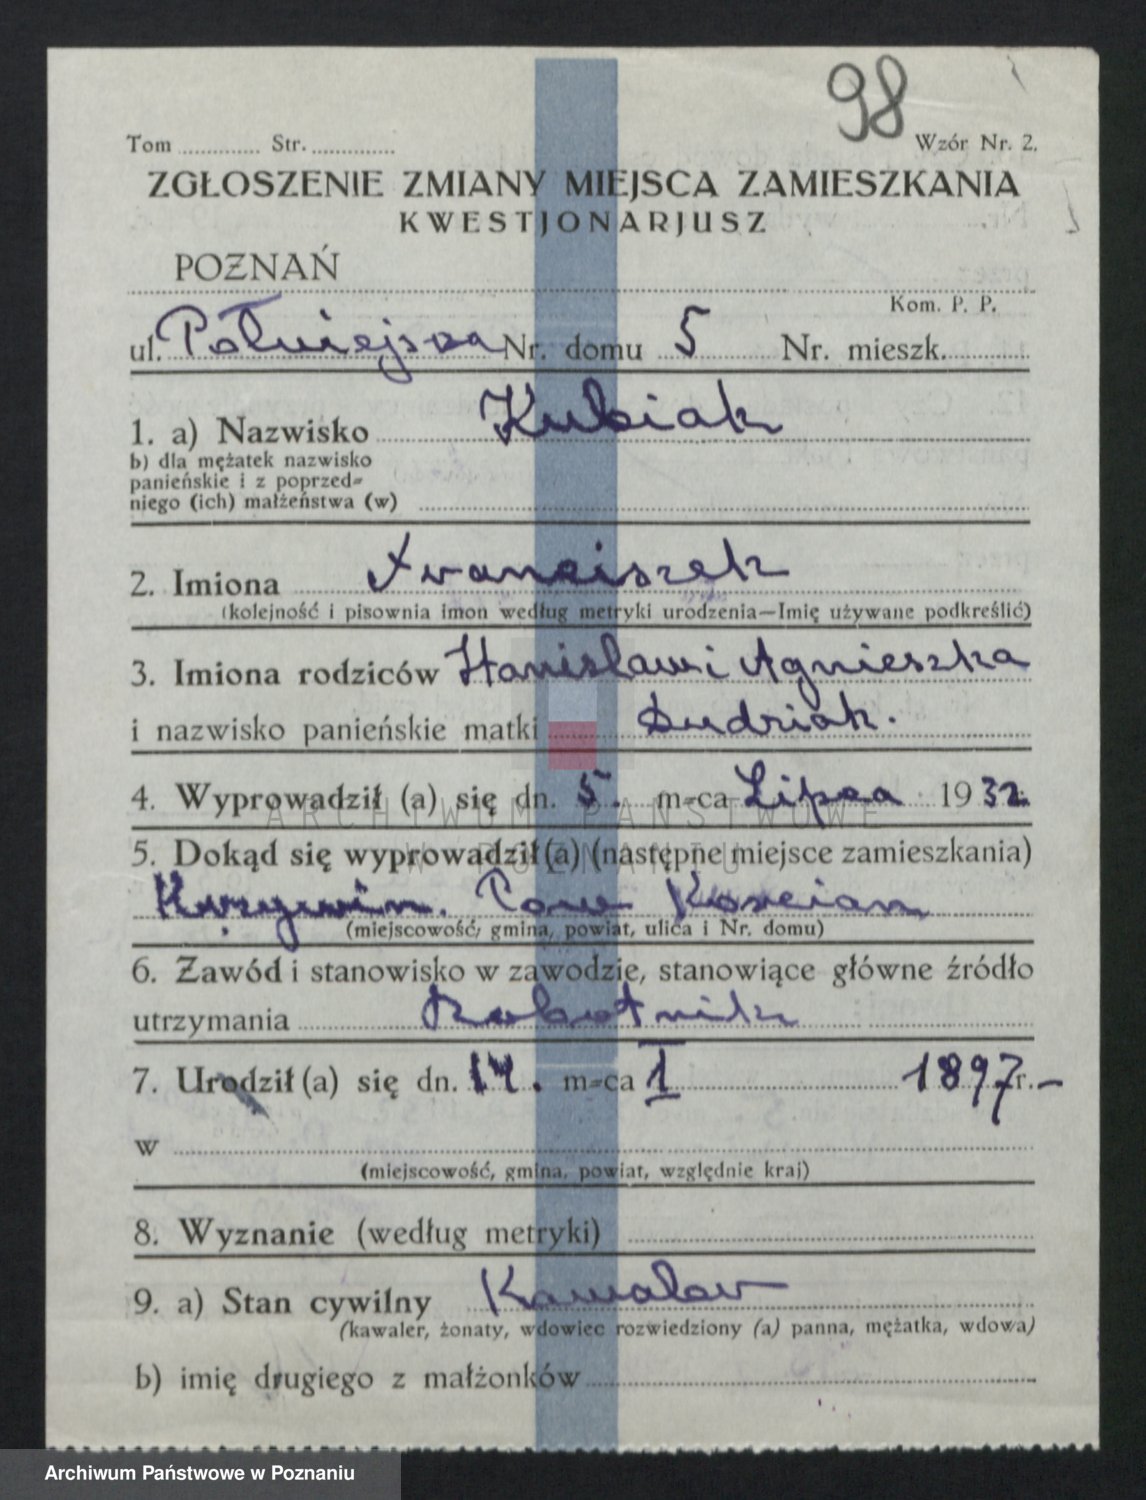 98
Tom ............ Str. ............ Wzór Nr. 2.
ZGŁOSZENIE ZMIANY MIEJSCA ZAMIESZKANIA
KWESTJONARJUSZ
POZNAŃ
Kom. P. P.
ul. Półwiejska Nr. domu 5 Nr. mieszk.
1. a) Nazwisko Kubiak
b) dla mężatek nazwisko
panieńskie i z poprzed=
niego (ich) małżeństwa (w)
2. Imiona Franciszek
(kolejność i pisownia imon według metryki urodzenia—Imię używane podkreślić)
3. Imiona rodziców Stanisław i Agnieszka
i nazwisko panieńskie matki Dudziak.
4. Wyprowadził (a) się dn. 5. m=ca Lipca 1932
ARCHIWUM PAŃSTWOWE
5. Dokąd się wyprowadził(a) (następne miejsce zamieszkania)
W POZNANIU
Krzywin. Pow Kościan
(miejscowość, gmina, powiat, ulica i Nr. domu)
6. Zawód i stanowisko w zawodzie, stanowiące główne źródło
utrzymania Robotnik
7. Urodził (a) się dn. 14. m=ca I 1897 r. –
w
(miejscowość, gmina, powiat, względnie kraj)
8. Wyznanie (według metryki)
9. a) Stan cywilny Kawaler
(kawaler, żonaty, wdowiec rozwiedziony (a) panna, mężatka, wdowa)
b) imię drugiego z małżonków
Archiwum Państwowe w Poznaniu